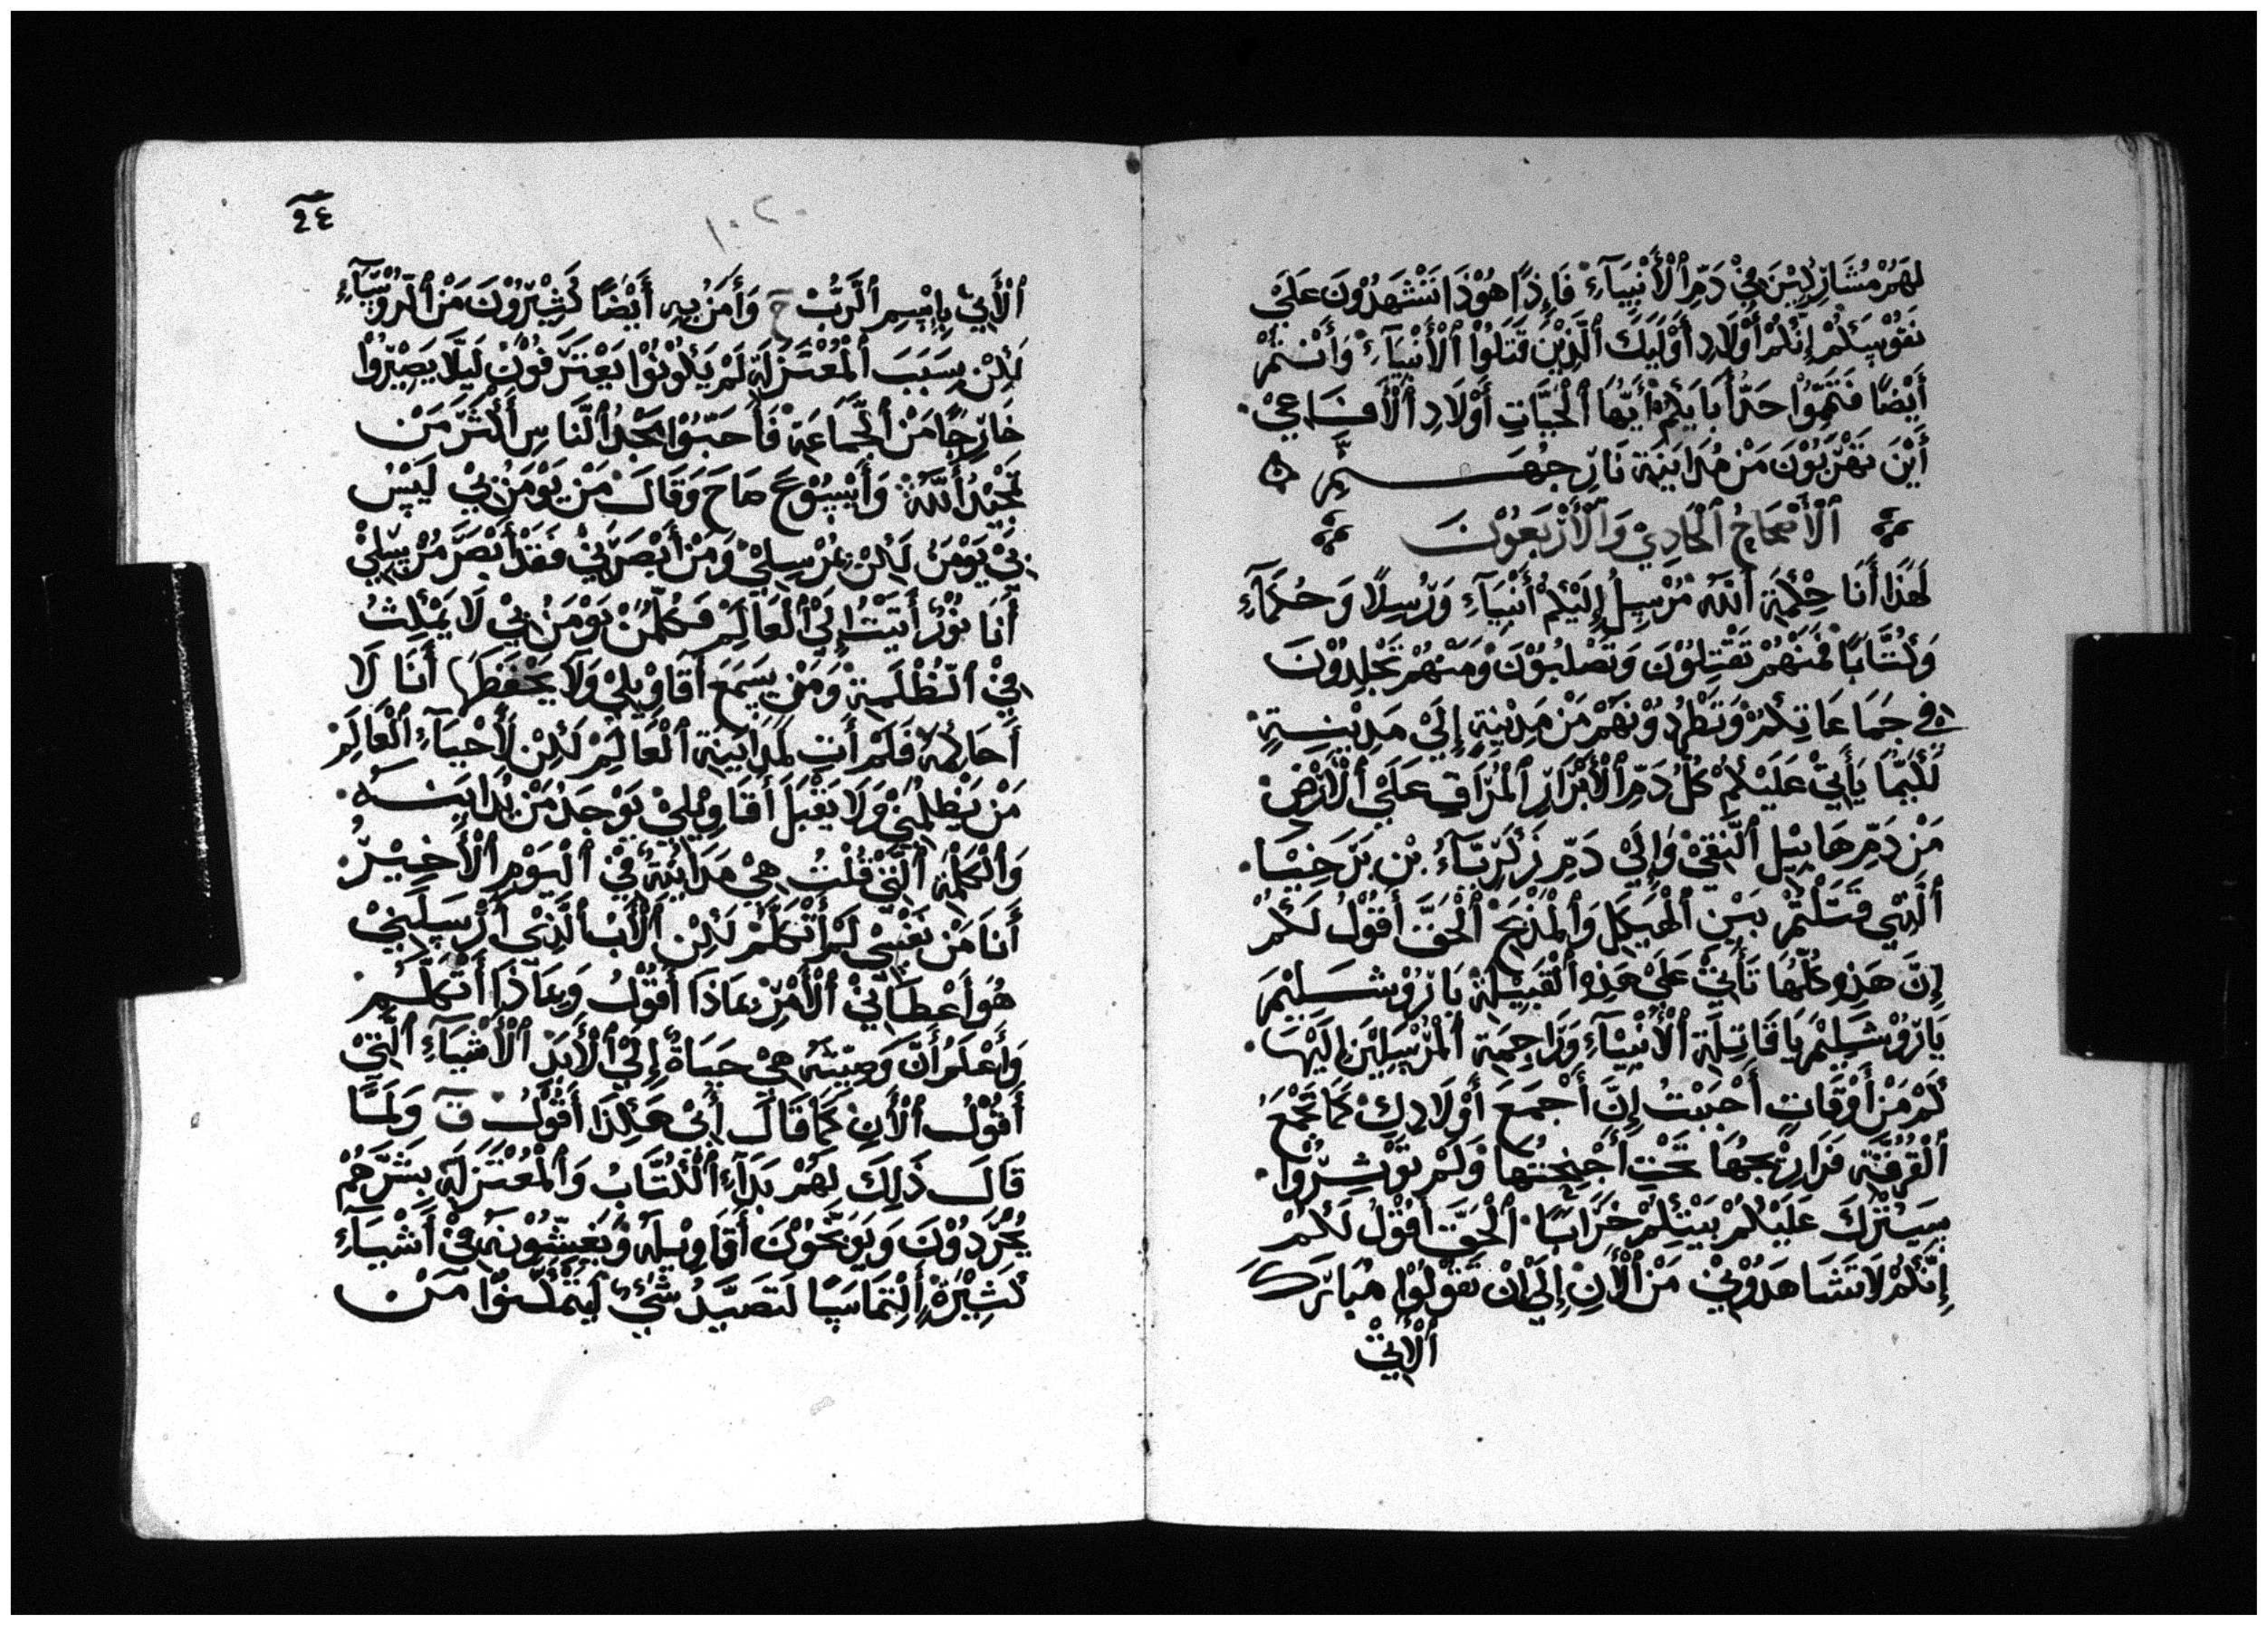 لَهُمْ مُشَارِكِيْنَ فِيْ دَمِ ٱلْأَنْبِيَآءِ فَإِذًا هُوَذَا تَتْشَهَدُوْنَ عَلَىْ
نَفُوْسِكُمْ إِنَّكُمْ أَوْلَادِ أُوْلَيِكَ ٱلَّذِيْنَ قَتَلُوْا ٱلْأَنْبِيَآءِ وَأَنْتُمْ
أَيْضًا فَتَمِّوْا حَدَّ أَبَايِكُمْ أَيُّهَا ٱلْحَيَّاتِ أَوْلَادِ ٱلْأَفَاعِيْ
أَيْنَ تَهْرَبُوْنَ مَنْ مُدَايَنِةِ نَارِ جَهَنَّمِ
ٱلْأَصْحَاحُ ٱلْحَادِيْ وَٱلْأَرْبَعُوْنَ
لِهَذَا أَنَا حِكْمَةِ ٱللَّهِ مُرْسِلُ إِلَيْكُمْ أَنْبِيَآءِ وَرُسِلًا وَحُكَمَآءِ
وَكُتَّابًا فَمَنْهُمْ تَقْتِلُوْنَ وَتَصْلِبُوْنَ وَمَنْهُمْ تَجْلِدُوْنَ
فِيْ جَمَاعَاتِكُمْ وَتَطْرُدُوْنَهُمْ مَنْ مَدِيْنِةِ إِلَىْ مَدِيْنِةٍ
لِكَيْمَا يَأْتِيْ عَلَيْكُمْ كُلُّ دَمِ ٱلْأَبْرَارِ ٱلْمُرَاقِ عَلَىْ ٱلْأَرْضِ
مَنْ دَمِ هَابِيْلِ ٱلنَّقِيْ وَإِلَىْ دَمِ زَكَرِيَّآءُ بْنِ بَرَخِيْيَا
ٱلَّذِيْ قَتَلْتُمْ بَيْنِ ٱلْهَيْكَلِ وَٱلْمَذْبَحِ ٱلْحَقَّ أَقُوْلُ لَكُمْ
إِنَّ هَذِهِ كُلُّهَا تَأْتِيْ عَلَىْ هَذِهِ ٱلْقَبِيْلَةْ يَارُوْشَلِيْمِ
يَارُوْشَلِيْمِ يَا قَاتِلَةِ ٱلْأَنْبِيَآءِ وَرَاجِمَةِ ٱلْمُرْسِلِيْنِ إِلَيْهَا
كَمْ مَنْ أَوْقَاتِ أَحْبَبْتُ إِنَّ أَجْمَعَ أَوْلَادِكِ كَمَا تَجْمَعُ
ٱلْقُرْقَةِ فَرَارِيْجِهَا تَحْتِ أَجْنِحَتِهَا وَلَمْ تُوْثِرُوْا
سَيُتْرَكَ عَلَيْكُمْ بَيْتِكُمْ خَرَابًا ٱلْحَقَّ أَقُوْلُ لَكُمْ
إِنَّكُمْ لَا تَشَاهَدُوْنِيْ مَنْ ٱلْأَنِ إِلَىْ أَنْ تَقُوْلُوْا مُبَارَكَ
ٱلْأَتِيْ
٢٤
١٠٢
ٱلْأَتِيْ بِإِسْمِ ٱلرَّبُّ حَ وَأَمَنُ بِهِ أَيْضًا كَثِيْرُوْنَ مَنْ ٱلرُوْسَآءِ
لَكِنْ بِسَبَبَ ٱلْمُعْتَزَلَةِ لَمْ يَكُوْنُوْا يَعْتَرَفُوْنَ لَيَلَّا يَصِيْرُوْا
خَارِجًا مَنْ ٱلْجَمَاعَةِ فَأَحَبُّوْا مَجْدُ ٱلنَّاسِ أَكْثَرَ مَنْ
تَمْجِيْدُ ٱللَّهُ وَأَيْسُوْعَ صَاحَ وَقَالَ مَنْ يَوْمَنُ بِيْ لَيْسُ
بِيْ يَوْمَنُ لَكِنْ بِمُرْسِلِيْ وَمَنْ أَبْصَرَنِيْ فَقَدْ أَبْصَرَ مُرْسِلِيْ
أَنَا نُوْرُ أَتَيْتُ إِلَىْ ٱلْعَالِمْ فَكُلَّمَنْ يَوْمَنُ بِيْ لَا يَمْكِثُ
فِيْ ٱلظُّلْمِةِ وَمَنْ يَسَمَعَ أَقَاوِيْلِيْ وَلَا يَحْفَظَهَا أَنَا لَا
أَحَاكِمُهُ فَلَمْ أَتِ لِمُدَايَنِةِ ٱلْعَالِمْ لَكِنْ لَأَحْيَآءِ ٱلْعَالَمِ
مَنْ يَظْلِمُنِيْ وَلَا يَقْبَلَ أَقَاوِيْلِيْ يَوْجَدُ مَنْ يُدَايَنَهُ
وَٱلْكَلِمَةِ ٱلَّتِيْ قُلْتُ هِيْ مُدَايَنِهُ فِيْ ٱلْيَوْمِ ٱلْأَخِيْرُ
أَنَا مَنْ نَفْسِيْ لَمْ أَتَكَلَّمْ لَكِنْ ٱلْأَبْ ٱلَّذِيْ أَرْسَلَنِيْ
هُوَ أَعْطَانِيْ ٱلْأَمْرِ بِمَاذَا أَقُوْلُ وَبِمَاذَا أَتَكَلَّمْ
وَأَعْلَمُ أَنَّ وَصِيَّتَهُ هِيْ حَيَاةُ إِلَىْ ٱلْأَبَدْ ٱلْأَشْيَآءِ ٱلَّتِيْ
أَقُوْلُ ٱلْأَنِ كَمَا قَالَ أَبِيْ هَكِذَا أَقُوْلُ قَ وَلَمَّا
قَالَ ذَلِكَ لِهُمْ بَدَآءِ ٱلْكُتَّابُ وَٱلْمُعْتَزَلَةِ بِشَرَّهُمْ
يُحْرَدُوْنَ وَيَوَبَّخُوْنَ أَقَاوِيْلَهُ وَيَغِشُّوْنَهُ فِيْ أَشْيَآءِ
كَثِيْرَةْ إِلْتِمَاسًا لَتَصَيَّدُ شَيْءُ لَيَتْمَكَّنُوْا مَنْ